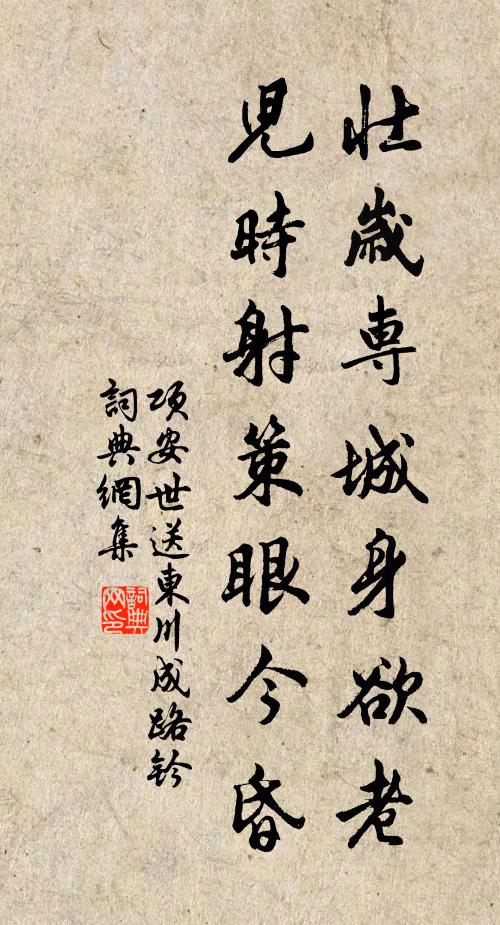 壯歲專城身欲老
兒時射策眼今昏
項安世送東川成路鈐
詞典網集
詞典
网印